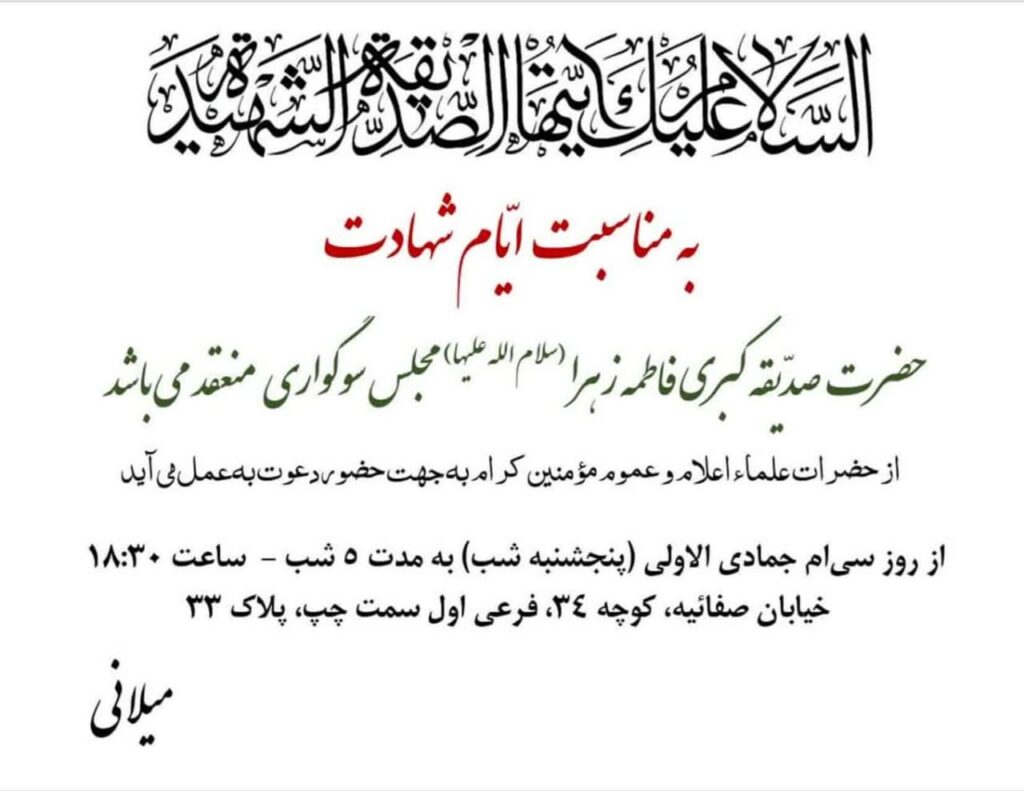 السَّلامُ عَلَیْكِ اَیَّتُهَا الصِّدّیقَةُ الشَّهیدَةُ
به مناسبت ایّام شهادت
حضرت صدّیقه کبری فاطمه زهرا (سلام الله علیها) مجلس سوگواری منعقد می باشد
از حضرات علماء اعلام و عموم مؤمنین کرام به جهت حضور دعوت به عمل می آید
از روز سی‌ام جمادی الاولی (پنجشنبه شب) به مدت ۵ شب – ساعت ۱۸:۳۰
خیابان صفائیه، کوچه ۳٤، فرعی اول سمت چپ، پلاک ۳۳
میلانی